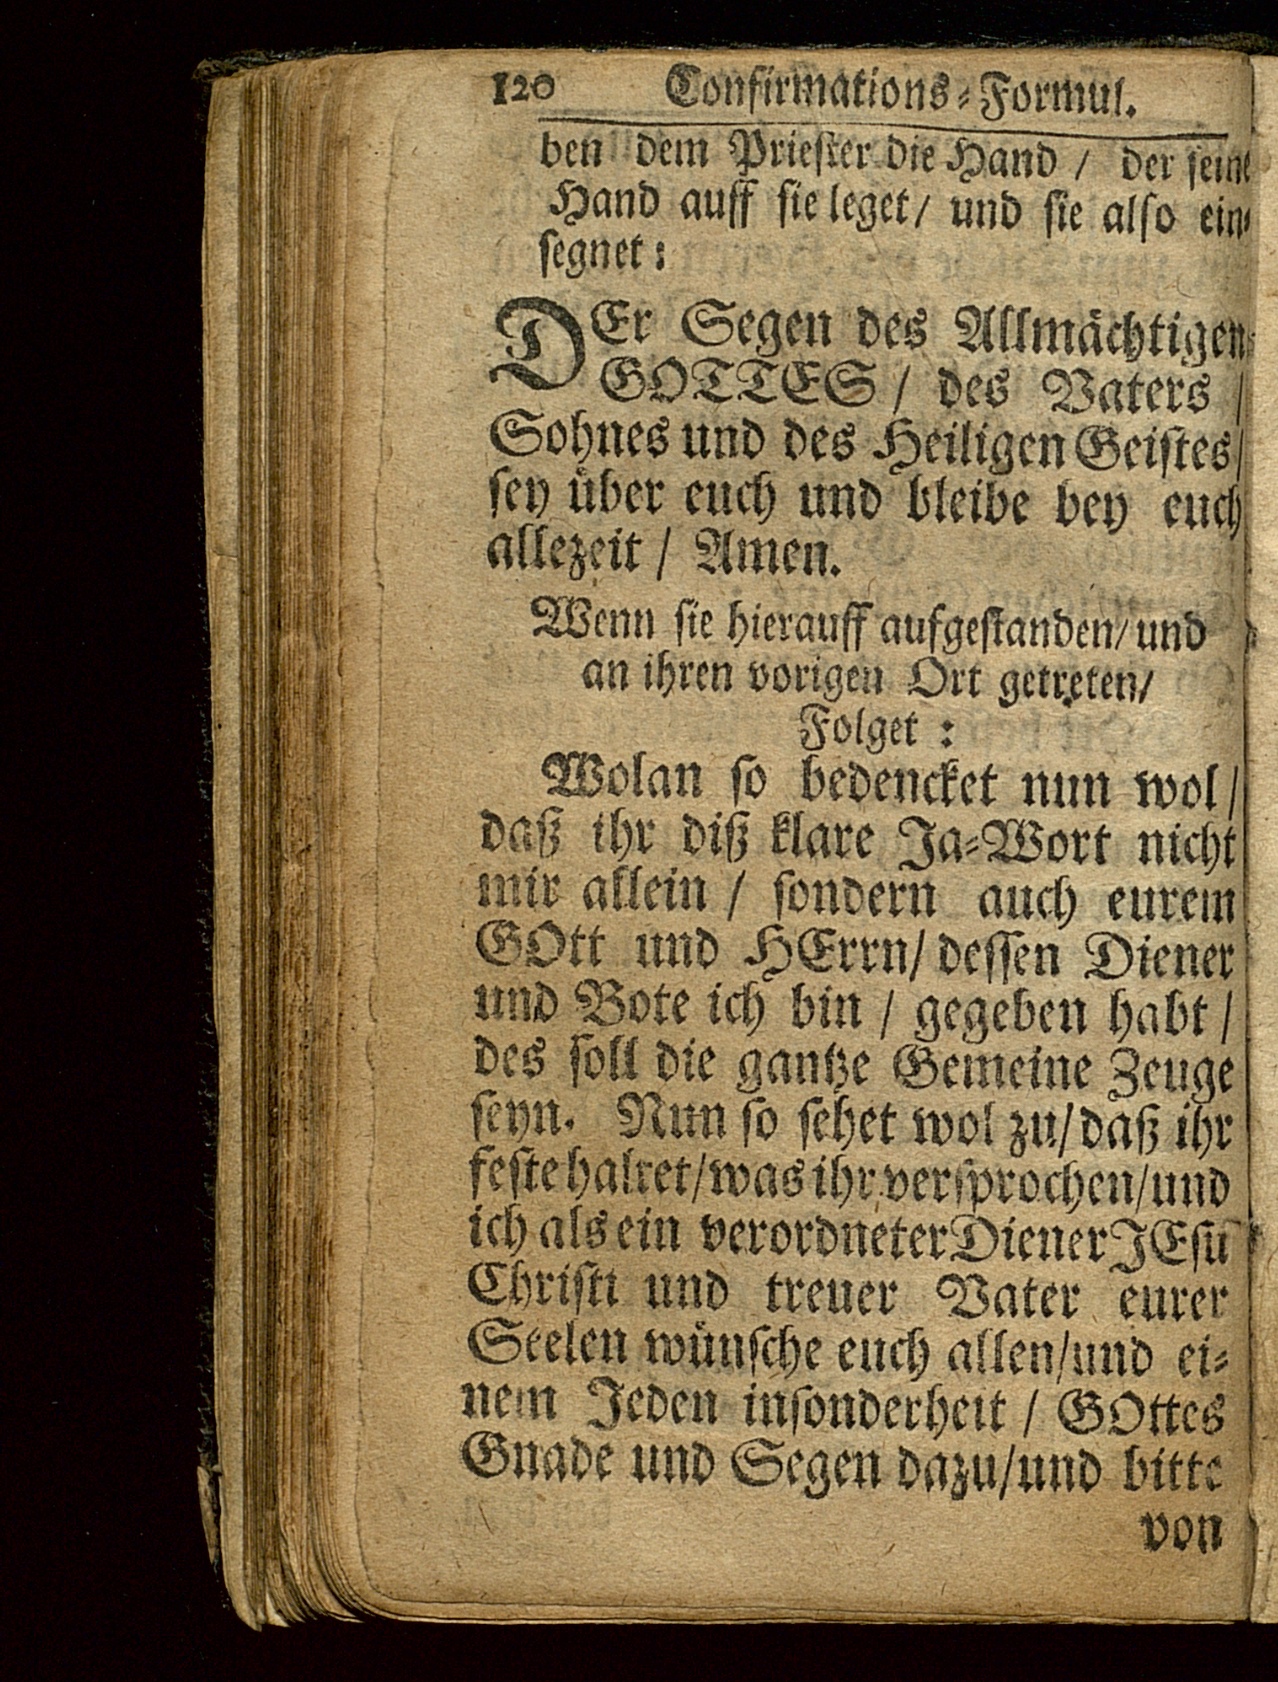 120 Confirmations-Formul.
ben dem Priester die Hand / der seine
Hand auff sie leget / und sie also ein-
segnet:
DEr Segen des Allmächtigen
GOTTES / des Vaters /
Sohnes und des Heiligen Geistes /
sey über euch und bleibe bey euch
allezeit / Amen.
Wenn sie hierauff aufgestanden / und
an ihren vorigen Ort getreten /
Folget:
Wolan so bedencket nun wol /
daß ihr diß klare Ja-Wort nicht
mir allein / sondern auch eurem
GOtt und HErrn / dessen Diener
und Bote ich bin / gegeben habt /
des soll die gantze Gemeine Zeuge
seyn. Nun so sehet wol zu / daß ihr
feste haltet / was ihr versprochen / und
ich als ein verordneter Diener JEsu
Christi und treuer Vater eurer
Seelen wünsche euch allen / und ei-
nem Jeden insonderheit / GOttes
Gnade und Segen dazu / und bitte
von